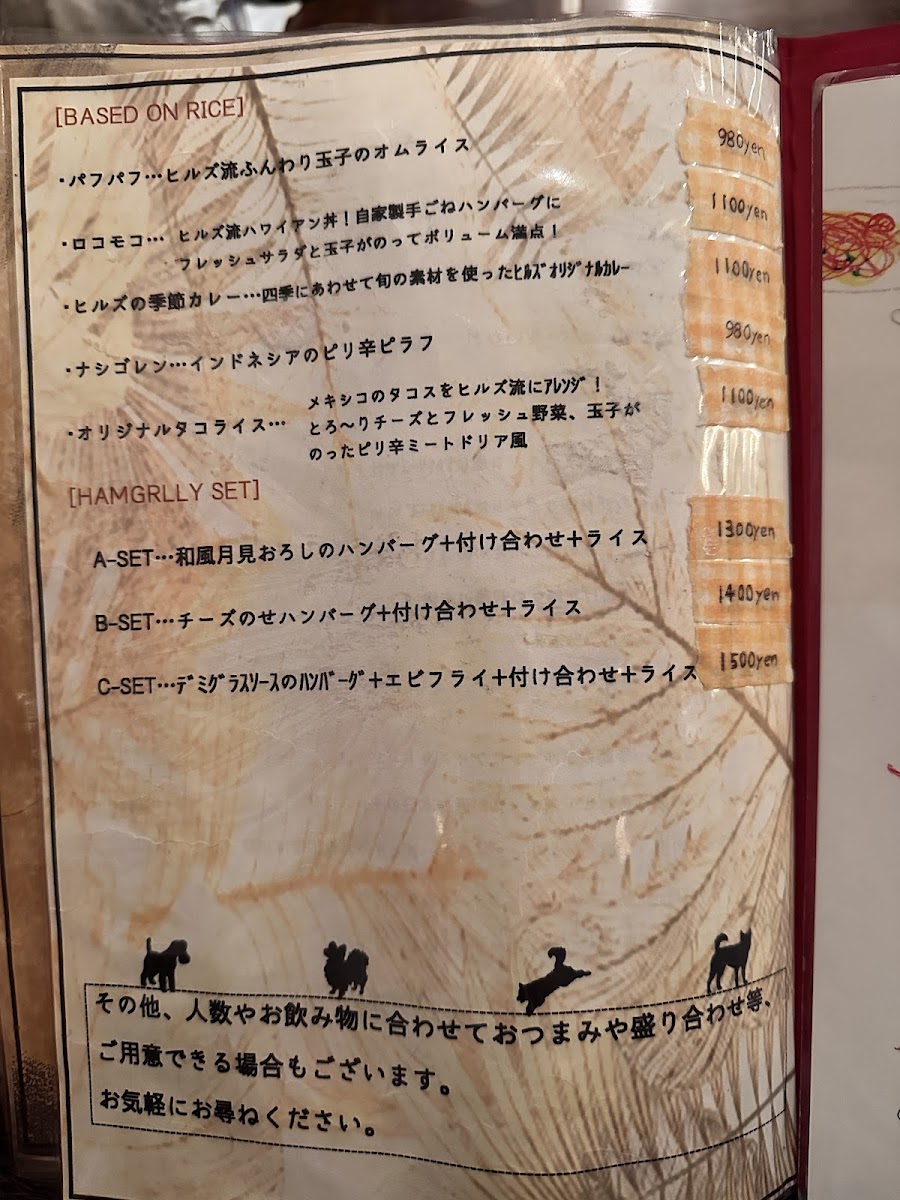 [BASED ON RICE]
・パフパフ…ヒルズ流ふんわり玉子のオムライス 980yen
・ロコモコ… ヒルズ流ハワイアン丼！自家製手ごねハンバーグに 1100yen
フレッシュサラダと玉子がのってボリューム満点！
・ヒルズの季節カレー…四季にあわせて旬の素材を使ったﾋﾙｽﾞｵﾘｼﾞﾅﾙｶﾚｰ 1100yen
・ナシゴレン…インドネシアのピリ辛ピラフ 980yen
・オリジナルタコライス… メキシコのタコスをヒルズ流にｱﾚﾝｼﾞ！ 1100yen
とろ〜りチーズとフレッシュ野菜、玉子が
のったピリ辛ミートドリア風
[HAMGRLLY SET]
A-SET…和風月見おろしのハンバーグ+付け合わせ+ライス 1300yen
B-SET…チーズのせハンバーグ+付け合わせ+ライス 1400yen
C-SET…ﾃﾞﾐｸﾞﾗｽｿｰｽのﾊﾝﾊﾞｰｸﾞ+エビフライ+付け合わせ+ライス 1500yen
その他、人数やお飲み物に合わせておつまみや盛り合わせ等、
ご用意できる場合もございます。
お気軽にお尋ねください。